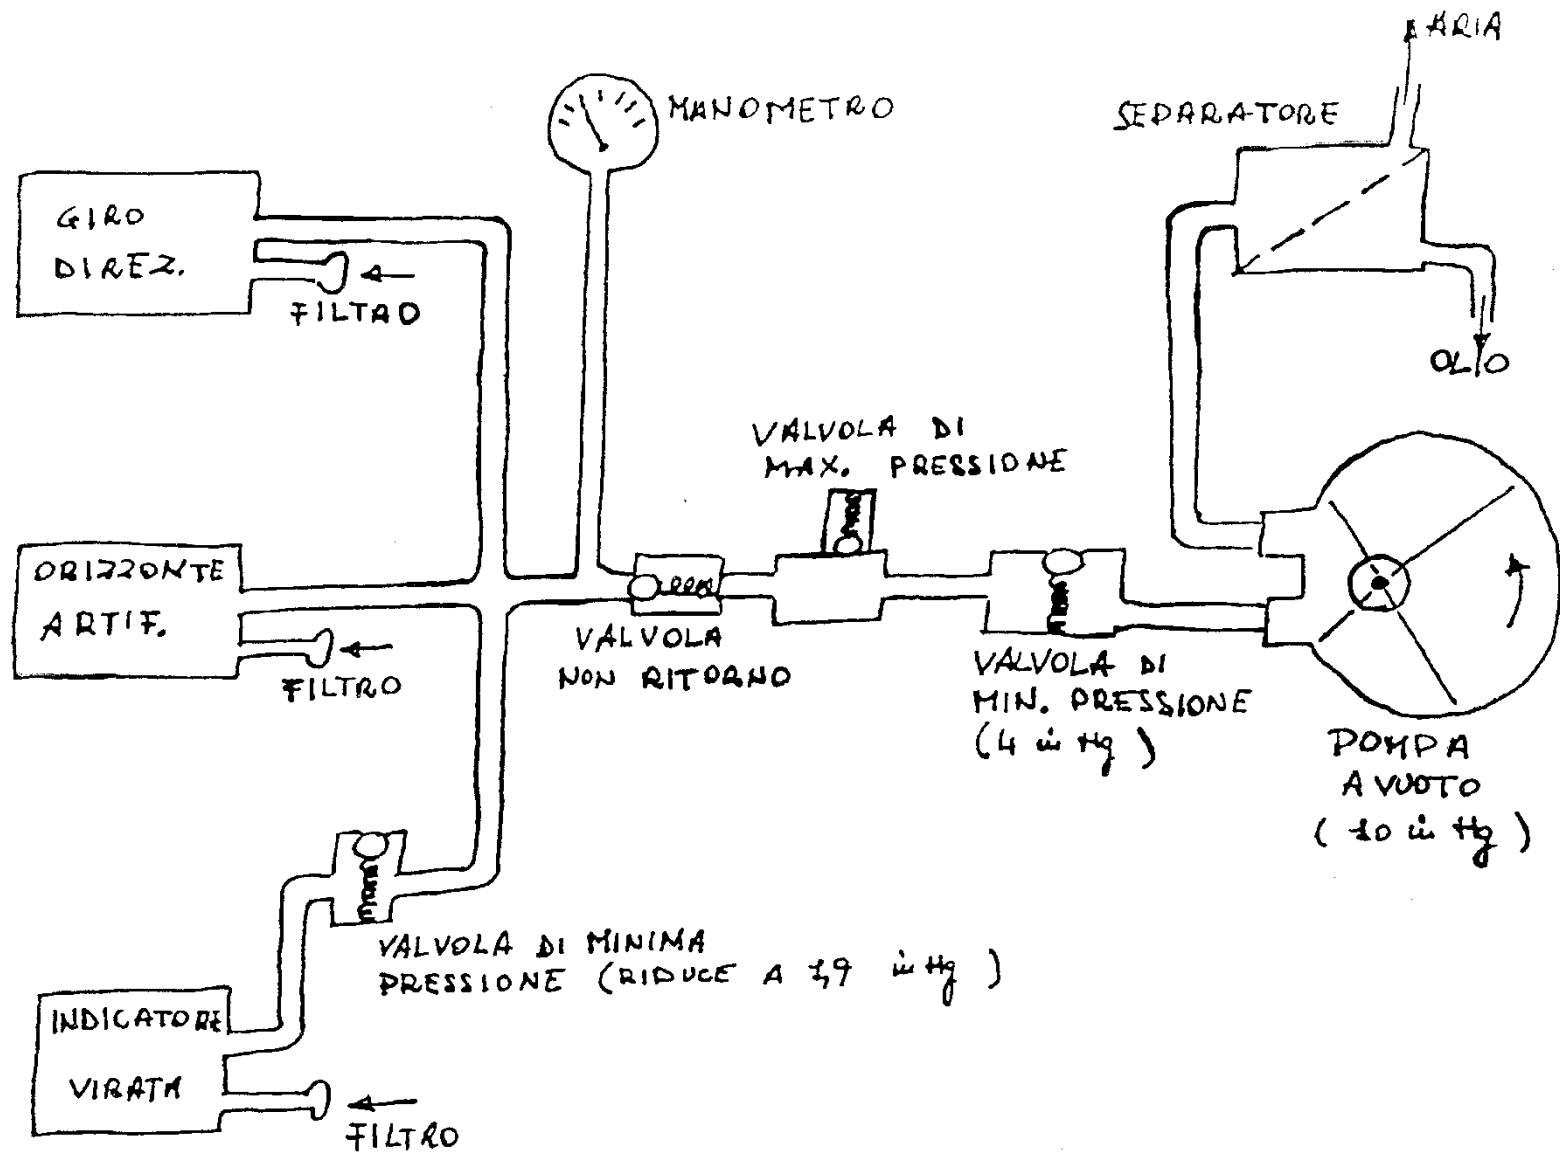 ARIA
MANOMETRO
SEPARATORE
GIRO
DIREZ.
FILTRO
OLIO
VALVOLA DI
MAX. PRESSIONE
ORIZZONTE
ARTIF.
FILTRO
VALVOLA
NON RITORNO
VALVOLA DI
MIN. PRESSIONE
(4 in Hg)
POMPA
A VUOTO
(10 in Hg)
VALVOLA DI MINIMA
PRESSIONE (RIDUCE A 1,9 in Hg)
INDICATORE
VIRATA
FILTRO